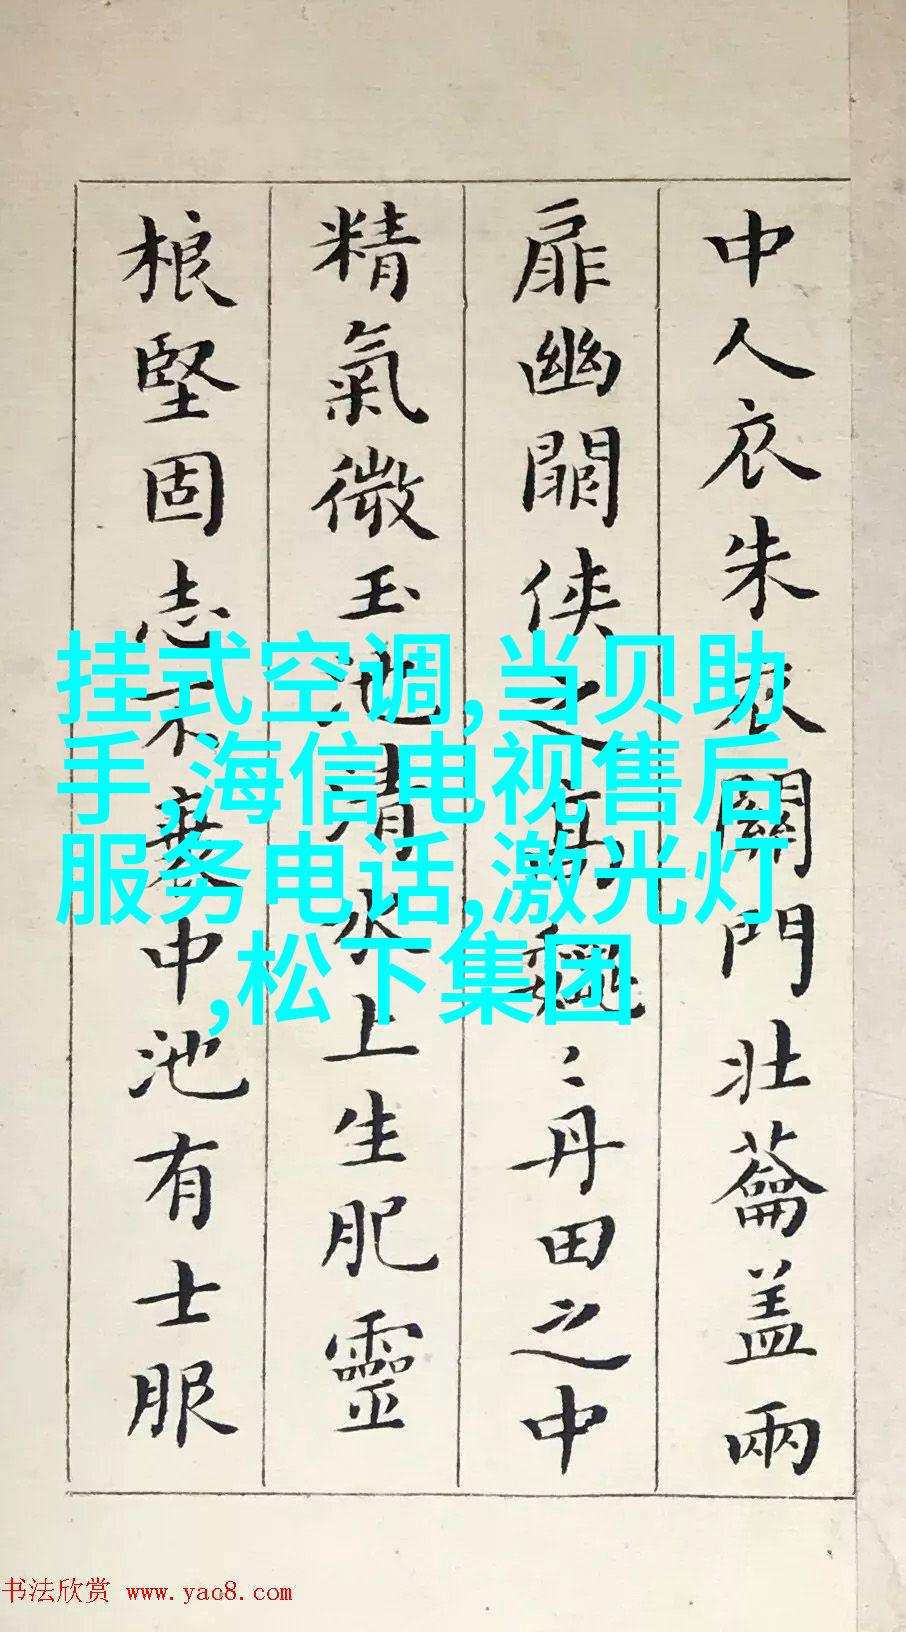 中人衣朱衣關門壯蘥盖兩
扉幽闕侠之高巍〻丹田之中
精氣微玉池清水上生肥靈
根堅固志不衰中池有士服
挂式空调,当贝助
手,海信电视售后
服务电话,激光灯
,松下集团
书法欣赏 www.yac8.com